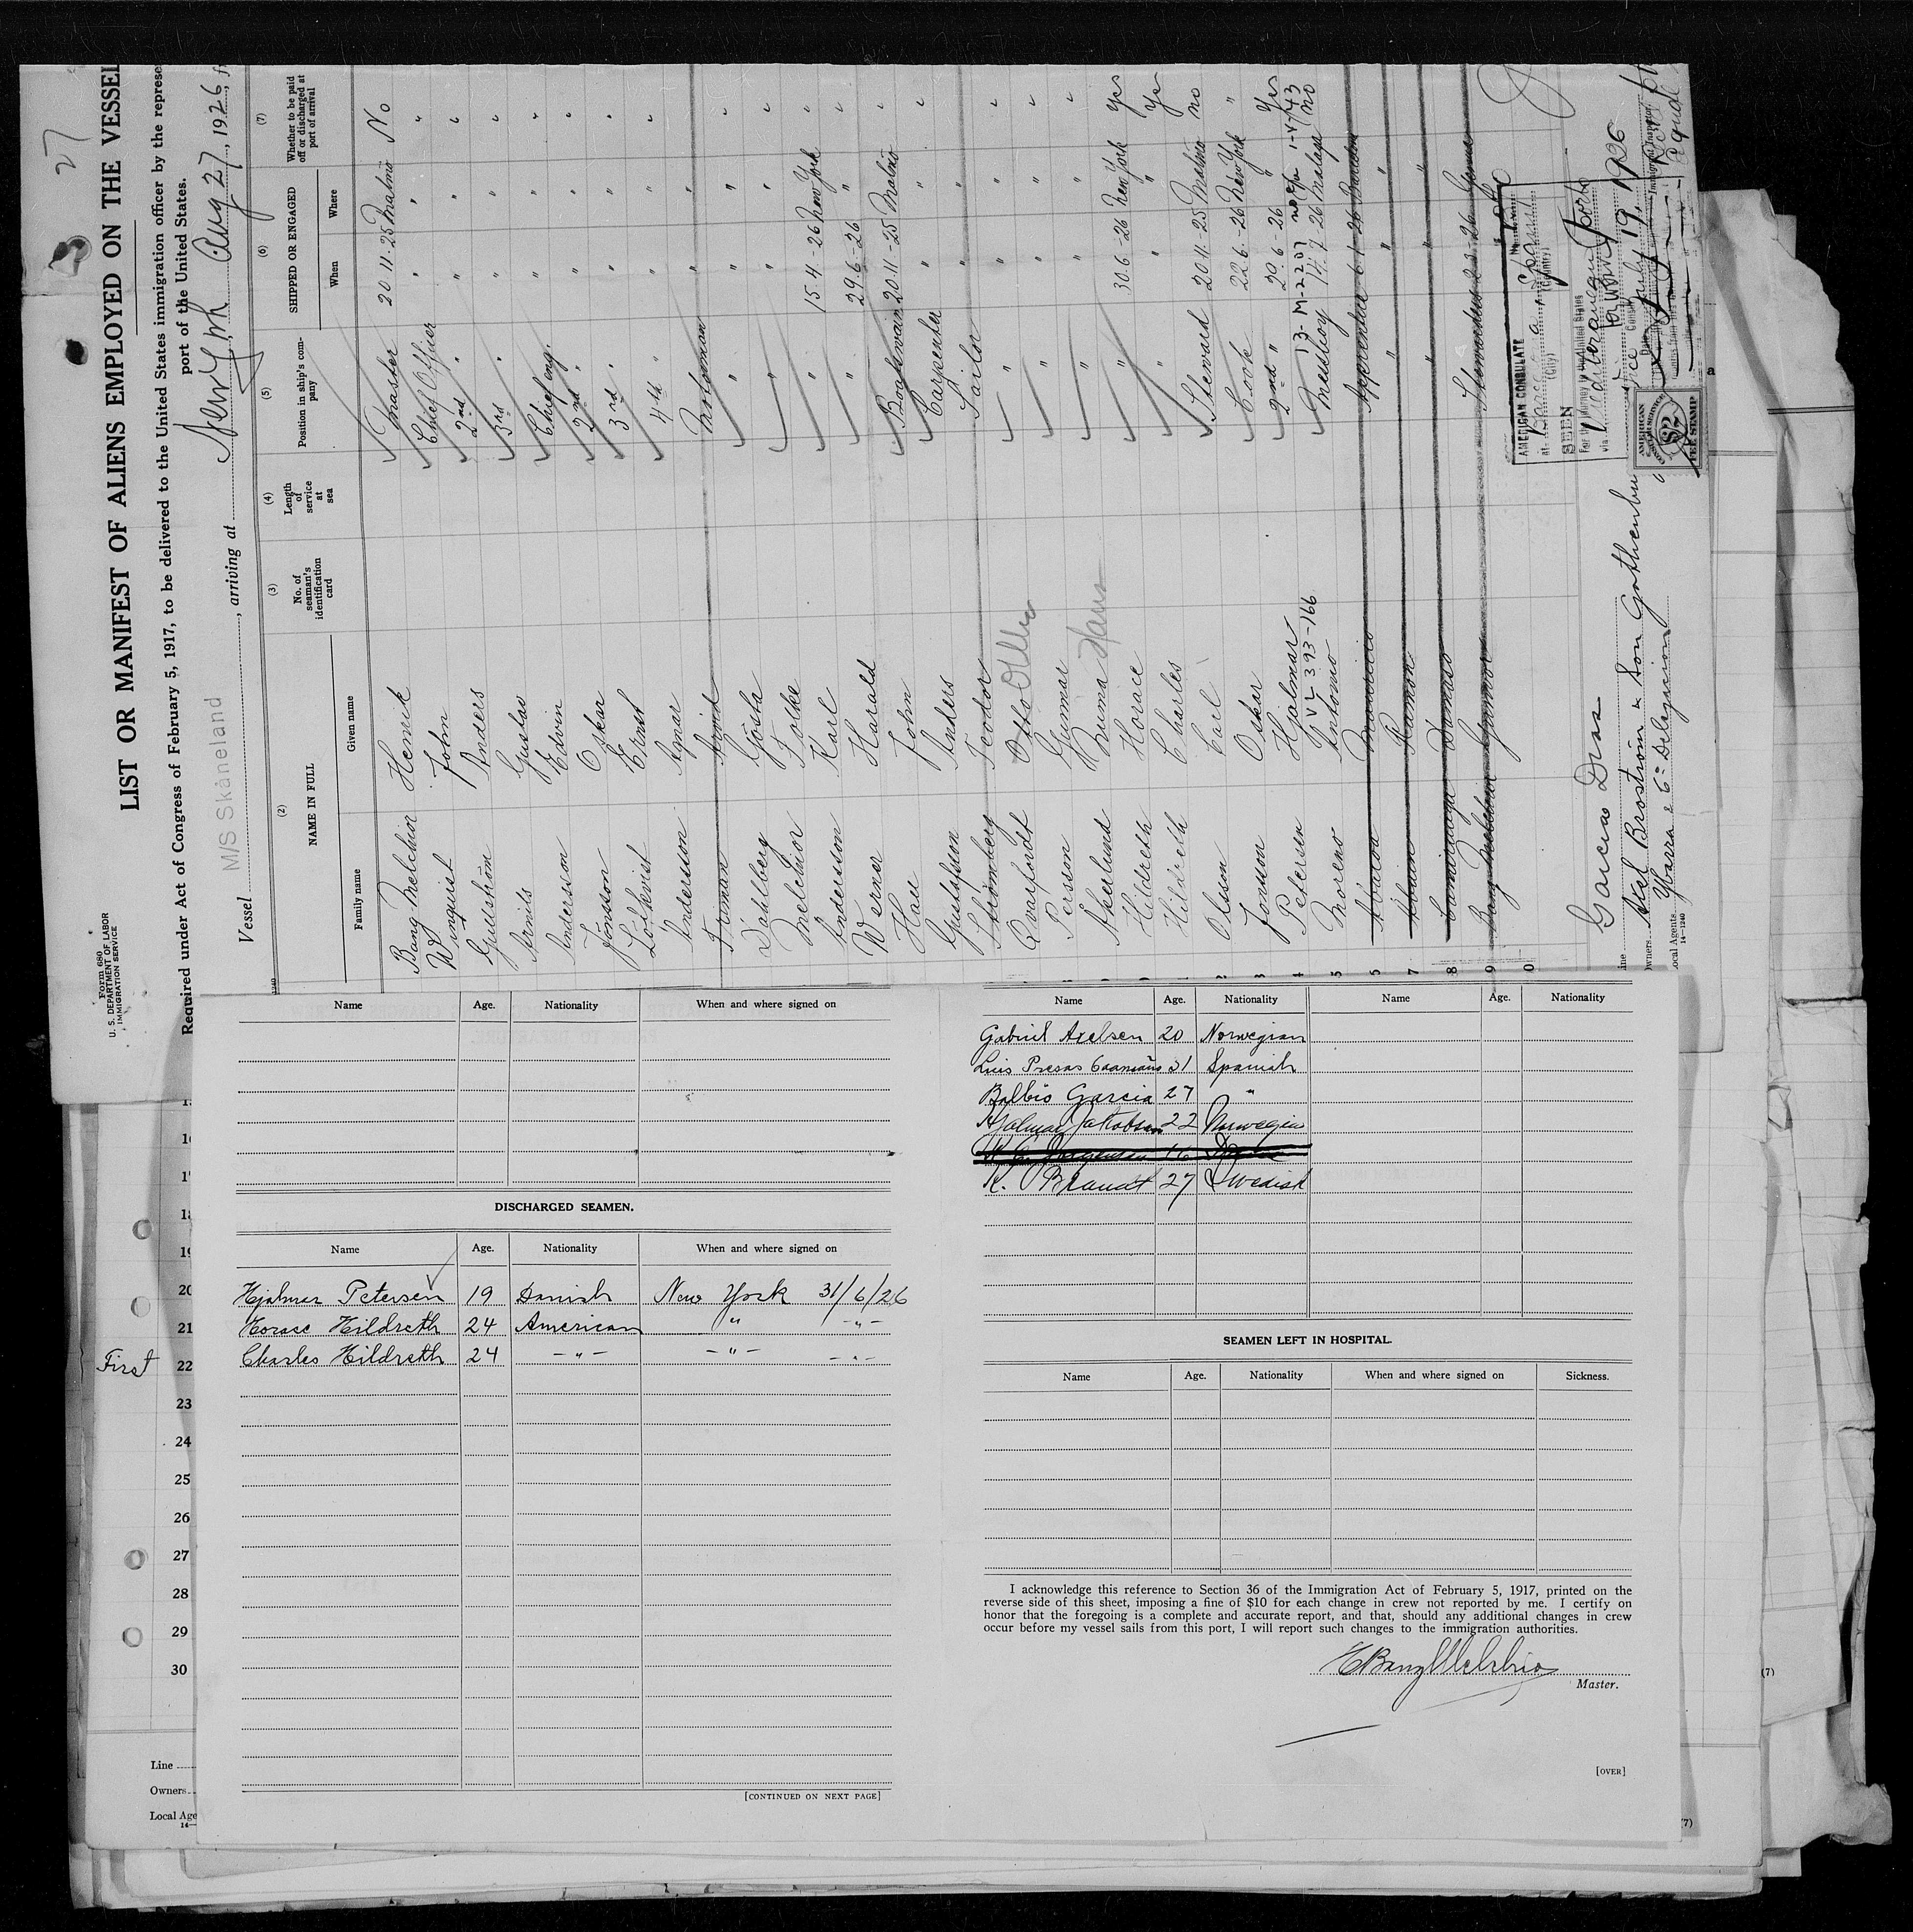 27
Form 680
U. S. DEPARTMENT OF LABOR
IMMIGRATION SERVICE
LIST OR MANIFEST OF ALIENS EMPLOYED ON THE VESSEL
Required under Act of Congress of February 5, 1917, to be delivered to the United States immigration officer by the represe
port of the United States.
Vessel M/S Skåneland, arriving at New York Aug 27, 1926, f
(2) (3) (4) (5) (6) (7)
NAME IN FULL
Family name Given name
No. of seaman's identification card
Length of service at sea
Position in ship's company
SHIPPED OR ENGAGED
When Where
Whether to be paid off or discharged at port of arrival
Bang Melchior Henrik Master 20 11-25 Malmö No
Winquist John Chief Officer " " "
Gullström Anders 2nd " " " "
Arnils Gustav 3rd " " " "
Andersson Edvin Chief eng. " " "
Jönsson Oskar 2nd " " " "
Löthvist Ernst 3rd " " " "
Andersson Agnar 4th " " " "
Froman Arvid Motorman " "
Dahlberg Gösta " " " "
Melchior Folke " " " "
Andersson Karl " 15 4-26 New York "
Werner Harald " 29 6-26 " "
Hall John Boatswain 20-11-25 Malmö "
Gustafsson Anders Carpenter " " "
Strömberg Teodor Sailor " "
Qvarfordt Otto " " " "
Persson Gunnar " " " "
Akerlund Bruma Hans " " " "
Hildreth Horace " 30.6-26 New York yes
Hildreth Charles " " " yes
Olsson Carl Steward 20 11-25 Malmö no
Jonsson Oskar Cook 22 6-26 New York "
Petersen Hjalmar 2nd " 29.6-26 " yes
VL-393-166 13-M-2-237
Moreno Antonio Messboy 14.7-26 Malaga no
Ramon " " "
Damaso " " "
Bang Melchior Gunvor Stewardess
AMERICAN CONSULATE
at Barcelona, Spain
(City) (Country)
SEEN
For the journey to the United States
via Mediterranean Ports
July 19, 1926
Vice Consul
AMERICAN
FEE STAMP
$2
Garcias Dias
ine
wners Axel Broström & Son Gothenbu
ocal Agents Ybarra & Co Delegacion
14-1240
Name Age. Nationality When and where signed on
DISCHARGED SEAMEN.
Name Age. Nationality When and where signed on
Hjalmar Petersen 19 Danish New York 31/6/26
Horace Hildreth 24 American " -"-
Charles Hildreth 24 -"- -"- -"-
[CONTINUED ON NEXT PAGE]
Name Age. Nationality Name Age. Nationality
Gabriel Axelsen 20 Norwegian
Luis Presas 31 Spanish
Balbis Garcia 27 "
Hjalmar Jakobsen 22 Norwegian
16
K. Brandt 27 Swedish
SEAMEN LEFT IN HOSPITAL.
Name Age. Nationality When and where signed on Sickness.
I acknowledge this reference to Section 36 of the Immigration Act of February 5, 1917, printed on the
reverse side of this sheet, imposing a fine of $10 for each change in crew not reported by me. I certify on
honor that the foregoing is a complete and accurate report, and that, should any additional changes in crew
occur before my vessel sails from this port, I will report such changes to the immigration authorities.
H Bang Melchior
Master.
[OVER]
17
18
19
20
21
First 22
23
24
25
26
27
28
29
30
Line
Owners
Local Age
14-
(7)
(7)